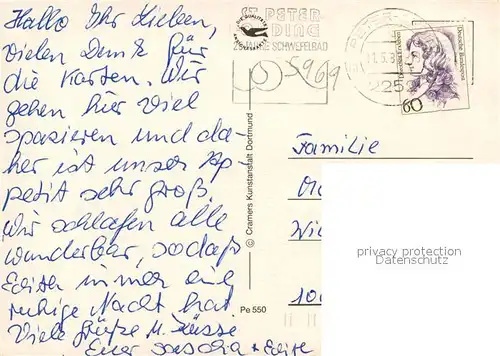 Hallo Ihr Lieben,
vielen Dank für
die Karten. Wir
gehen hier viel
spazieren und da-
her ist unser Ap-
petit sehr groß.
Wir schlafen alle
wunderbar, sodaß
Edith immer eine
ruhige Nacht hat.
Viele Grüße u. Küsse
Euer Sascha + Edith
ST. PETER
DING
SCHWEFELBAD
5969
2252
Dorothea Erxleben
Deutsche Bundespost
60
© Cramers Kunstanstalt Dortmund
Pe 550
Familie
10
privacy protection
Datenschutz